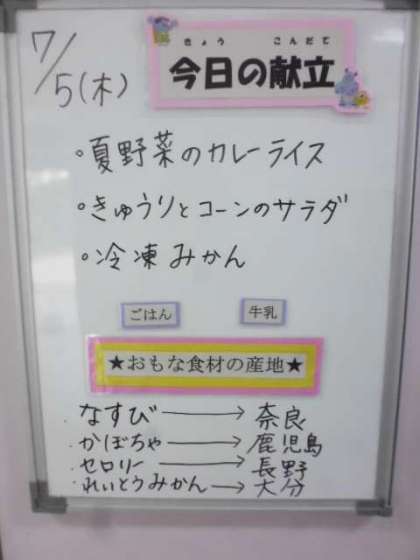 7/5(木)
きょう こんだて
今日の献立
・夏野菜のカレーライス
・きゅうりとコーンのサラダ
・冷凍みかん
ごはん 牛乳
★おもな食材の産地★
なすび→奈良
・かぼちゃ→鹿児島
・セロリー→長野
・れいとうみかん→大分